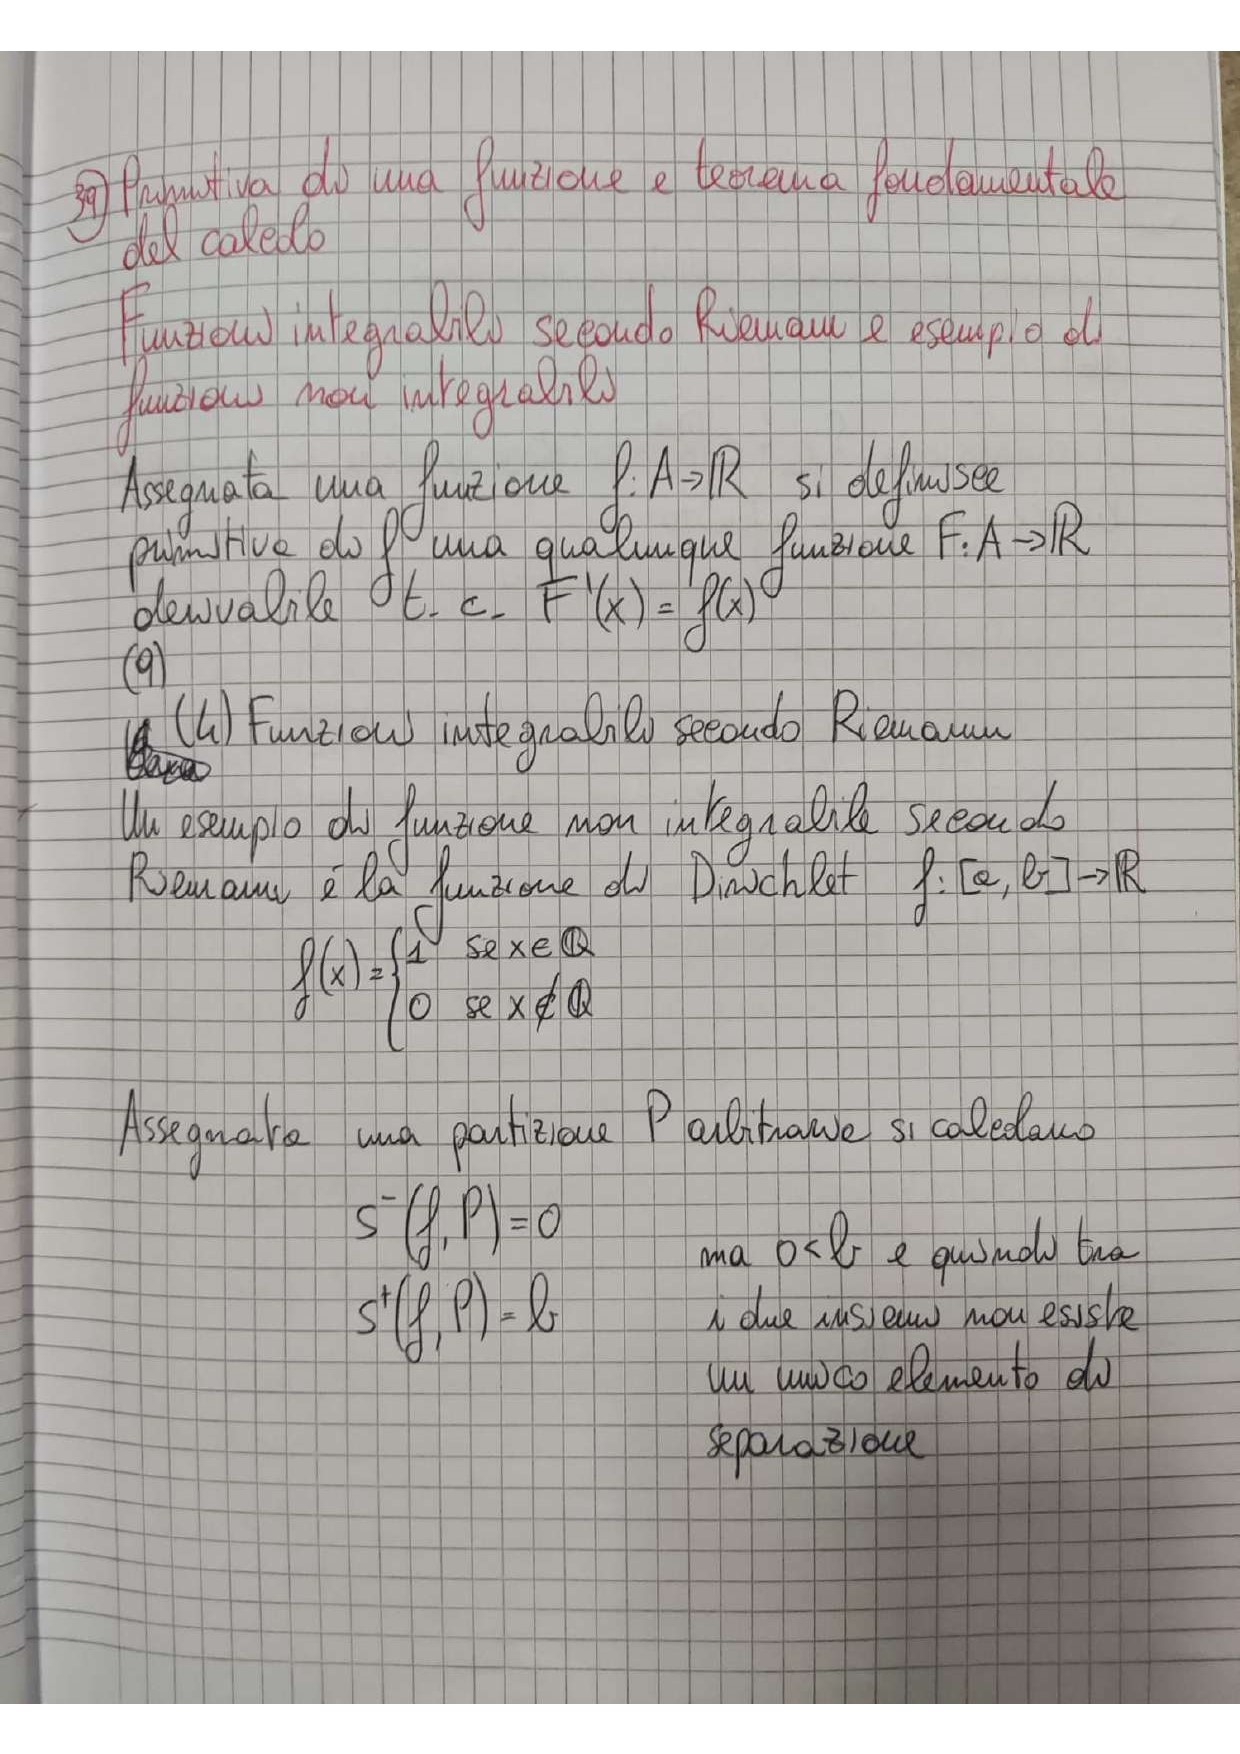 39) Primitiva di una funzione e teorema fondamentale
del calcolo
Funzioni integrabili secondo Riemann e esempio di
funzioni non integrabili
Assegnata una funzione f: A→ℝ si definisce
primitiva di f una qualunque funzione F: A→ℝ
derivabile t.c. F'(x) = f(x)
(9)
(4) Funzioni integrabili secondo Riemann
Un esempio di funzione non integrabile secondo
Riemann è la funzione di Dirichlet f: [a, b]→ℝ
f(x) = { 1 se x∈ℚ
0 se x∉ℚ
Assegnata una partizione P arbitraria si calcolano
s⁻(f, P) = 0
s⁺(f, P) = b
ma 0<b e quindi tra
i due insiemi non esiste
un unico elemento di
separazione